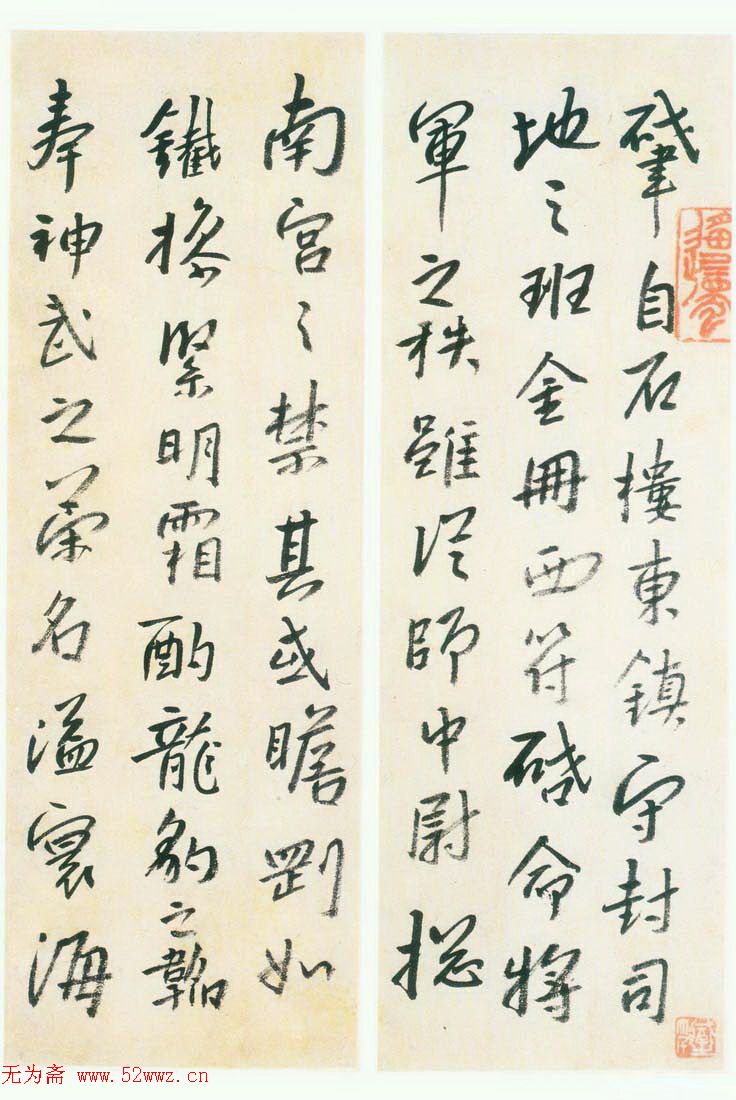 肇自石樓東鎮守封司
地之班金冊西符啟命將
軍之秩雖從師中尉總
南宮之禁其或膽剛如
鐵操緊明霜酌龍豹之韜
奉神武之榮名溢寰海
无为斋 www.52wwz.cn